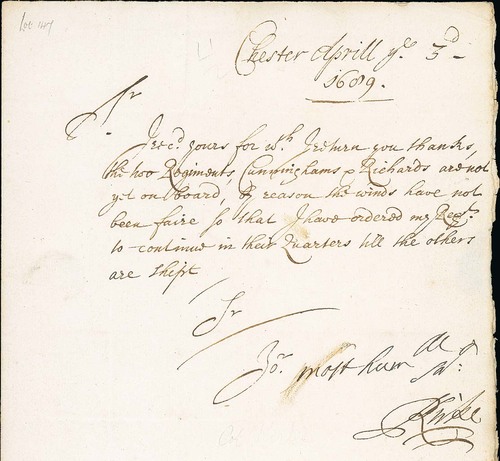 Lot 417
Chester Aprill ye 3d
1689.
Sr
I recd yours for wch I return you thanks,
the too Regiments, Cunninghams & Richards are not
yet on board, by reason the winds have not
been faire so that I have ordered my Regt
to continue in their Quarters till the others
are shipt
Sr
Yor most hum
Kirke